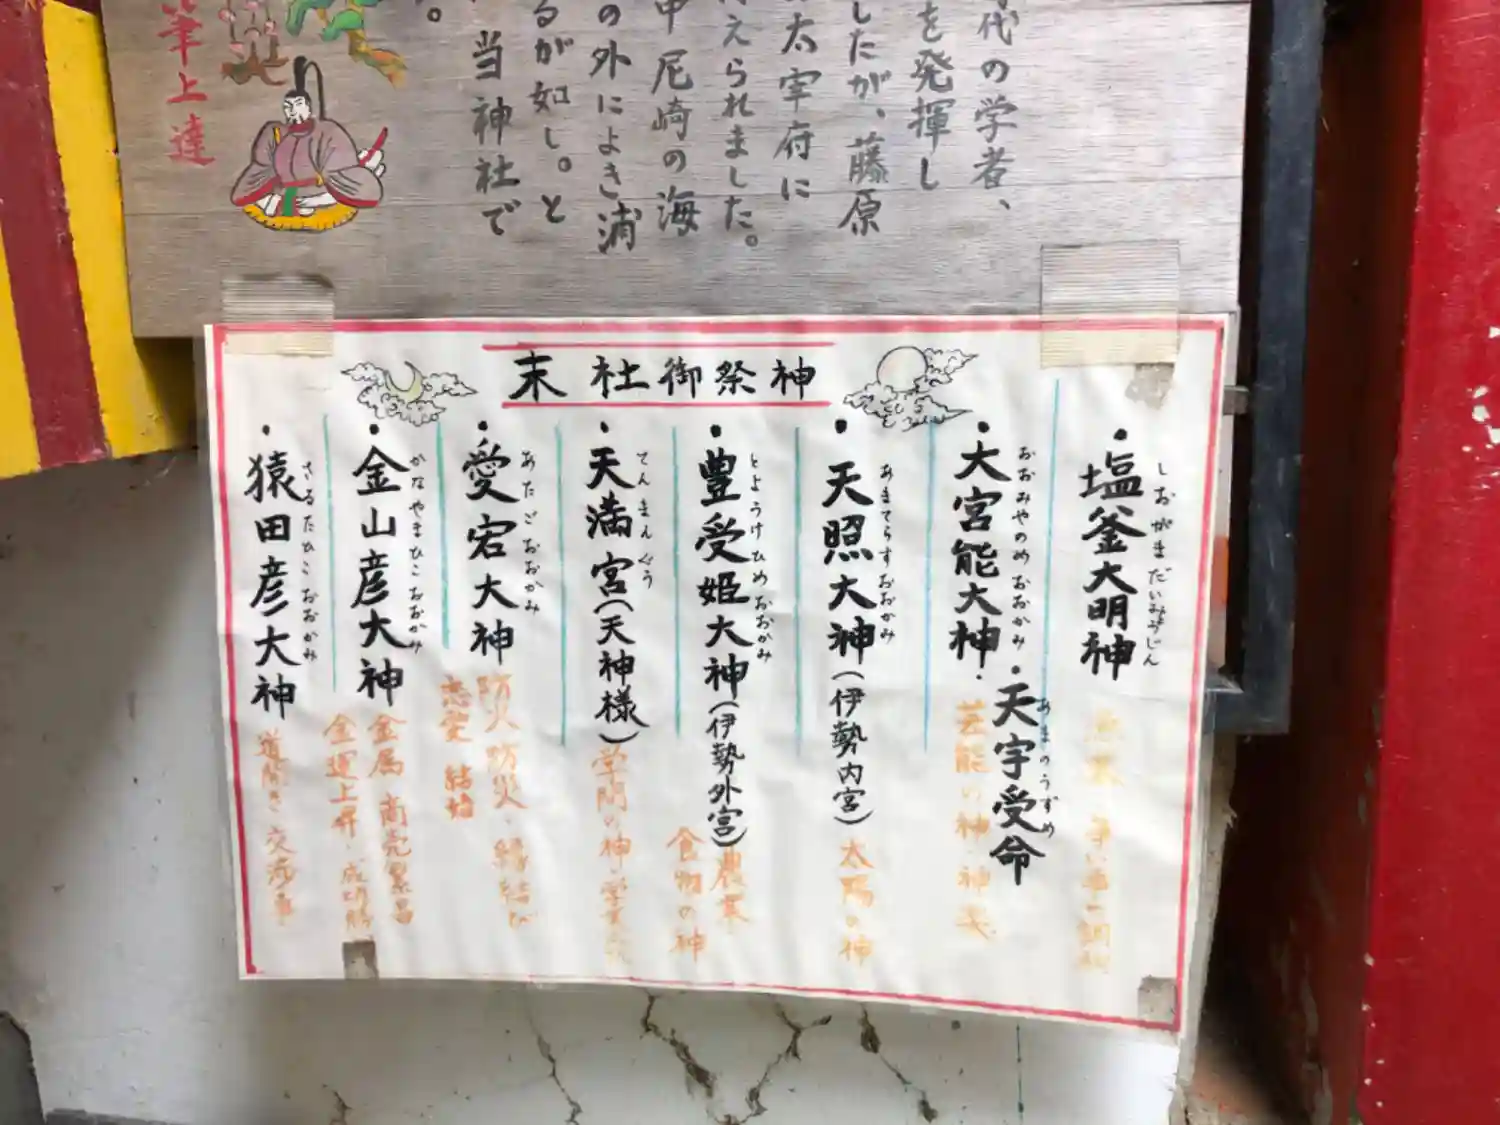 時代の学者、
を発揮し
したが、藤原
太宰府に
えられました。
中尼崎の海
の外によき浦
るが如し。と
当神社で
。
筆上達
末社御祭神
・塩釜大明神
しおがまだいみょうじん
・大宮能大神
おおみやのめおおかみ
・天宇受命
あまのうずめ
芸能の神 神楽
・天照大神(伊勢内宮)
あまてらすおおかみ
太陽の神
・豊受姫大神(伊勢外宮)
とようけひめおおかみ
農業
食物の神
・天満宮(天神様)
てんまんぐう
学問の神・学業
・愛宕大神
あたごおおかみ
防火 防災・縁結び
恋愛 結婚
・金山彦大神
かなやまひこおおかみ
金属 商売繁昌
金運上昇・成功
・猿田彦大神
さるたひこおおかみ
道開き・交渉事